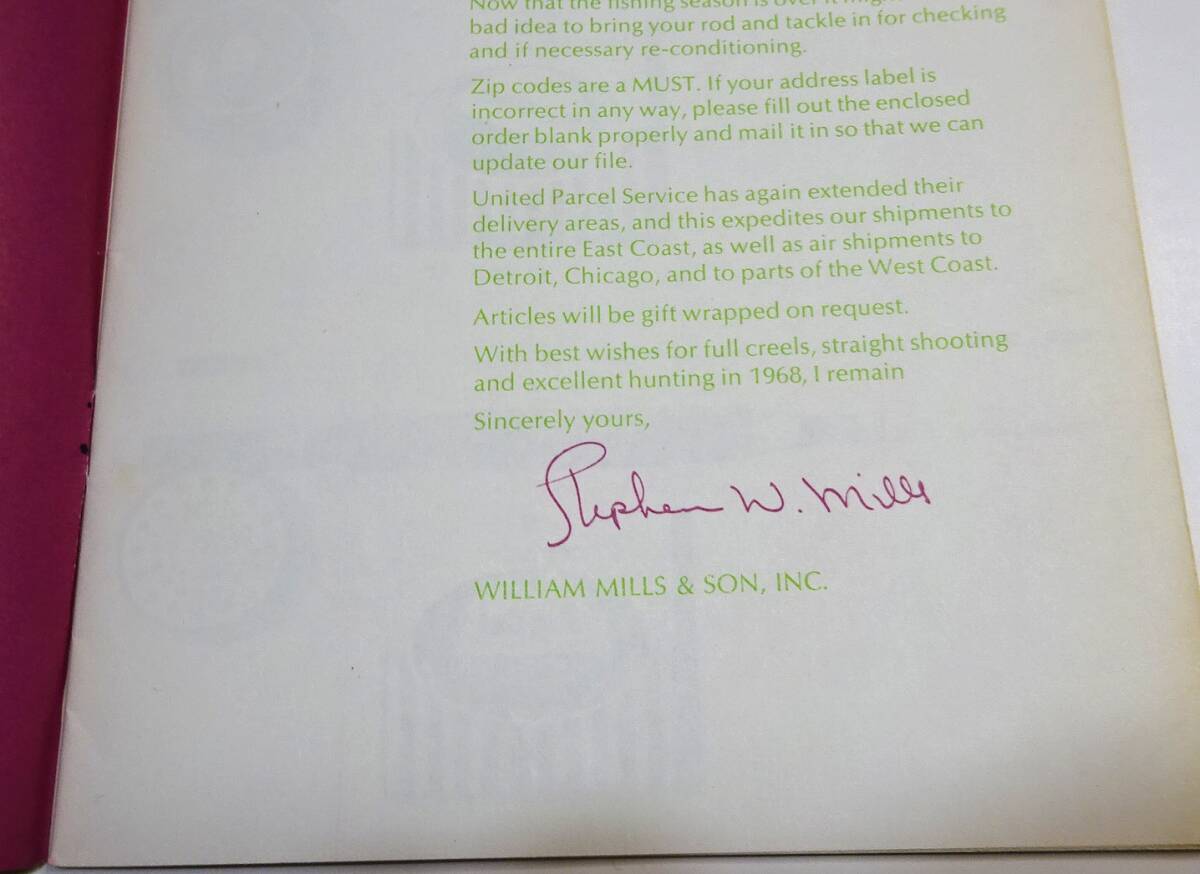 Now that the fishing season is over it might
bad idea to bring your rod and tackle in for checking
and if necessary re-conditioning.
Zip codes are a MUST. If your address label is
incorrect in any way, please fill out the enclosed
order blank properly and mail it in so that we can
update our file.
United Parcel Service has again extended their
delivery areas, and this expedites our shipments to
the entire East Coast, as well as air shipments to
Detroit, Chicago, and to parts of the West Coast.
Articles will be gift wrapped on request.
With best wishes for full creels, straight shooting
and excellent hunting in 1968, I remain
Sincerely yours,
Stephen W. Mills
WILLIAM MILLS & SON, INC.